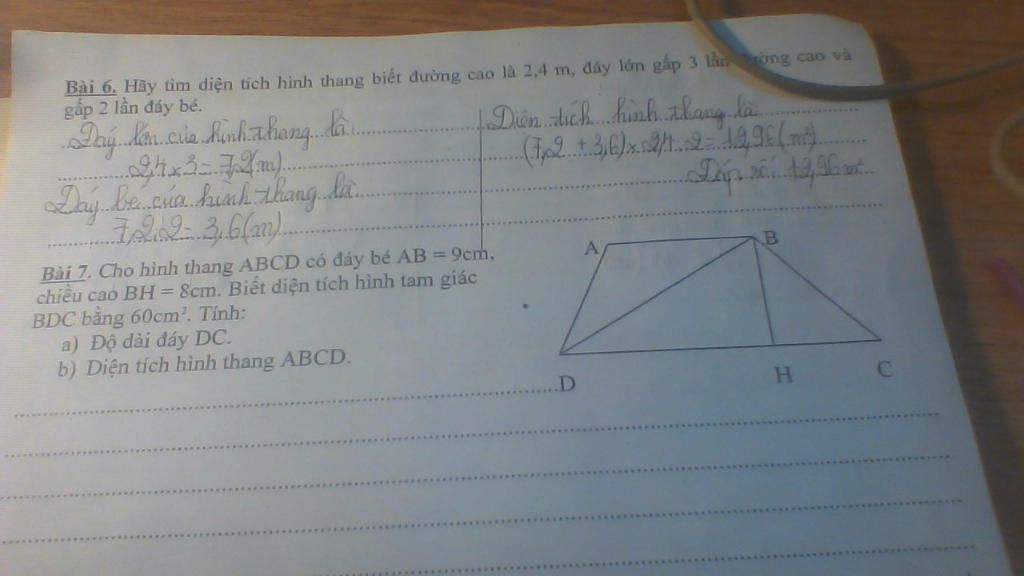 Bài 6. Hãy tìm diện tích hình thang biết đường cao là 2,4 m, đáy lớn gấp 3 lần đường cao và
gấp 2 lần đáy bé.
Đáy lớn của hình thang là
2,4 x 3 = 7,2(m)
Đáy bé của hình thang là
7,2 : 2 = 3,6(m)
Diện tích hình thang là
(7,2 + 3,6) x 2,4 : 2 = 12,96(m²)
Đáp số: 12,96m²
Bài 7. Cho hình thang ABCD có đáy bé AB = 9cm,
chiều cao BH = 8cm. Biết diện tích hình tam giác
BDC bằng 60cm². Tính:
a) Độ dài đáy DC.
b) Diện tích hình thang ABCD.
A
B
D
H
C